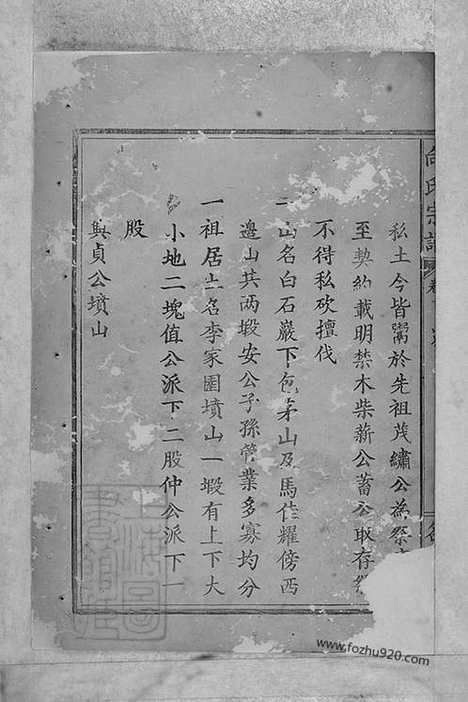 氏宗譜
卷
私土今皆鬻於先祖茂繡公為祭
至契約載明禁木柴薪公蓄公取存
不得私砍擅伐
一山名白石巖下包茅山及馬佳耀傍西
邊山共两塅安公子孫管業多寡均分
一祖居土名李家園墳山一塅有上下大
小地二塊值公派下二股仲公派下一
股
與貞公墳山
www.fozhu920.com